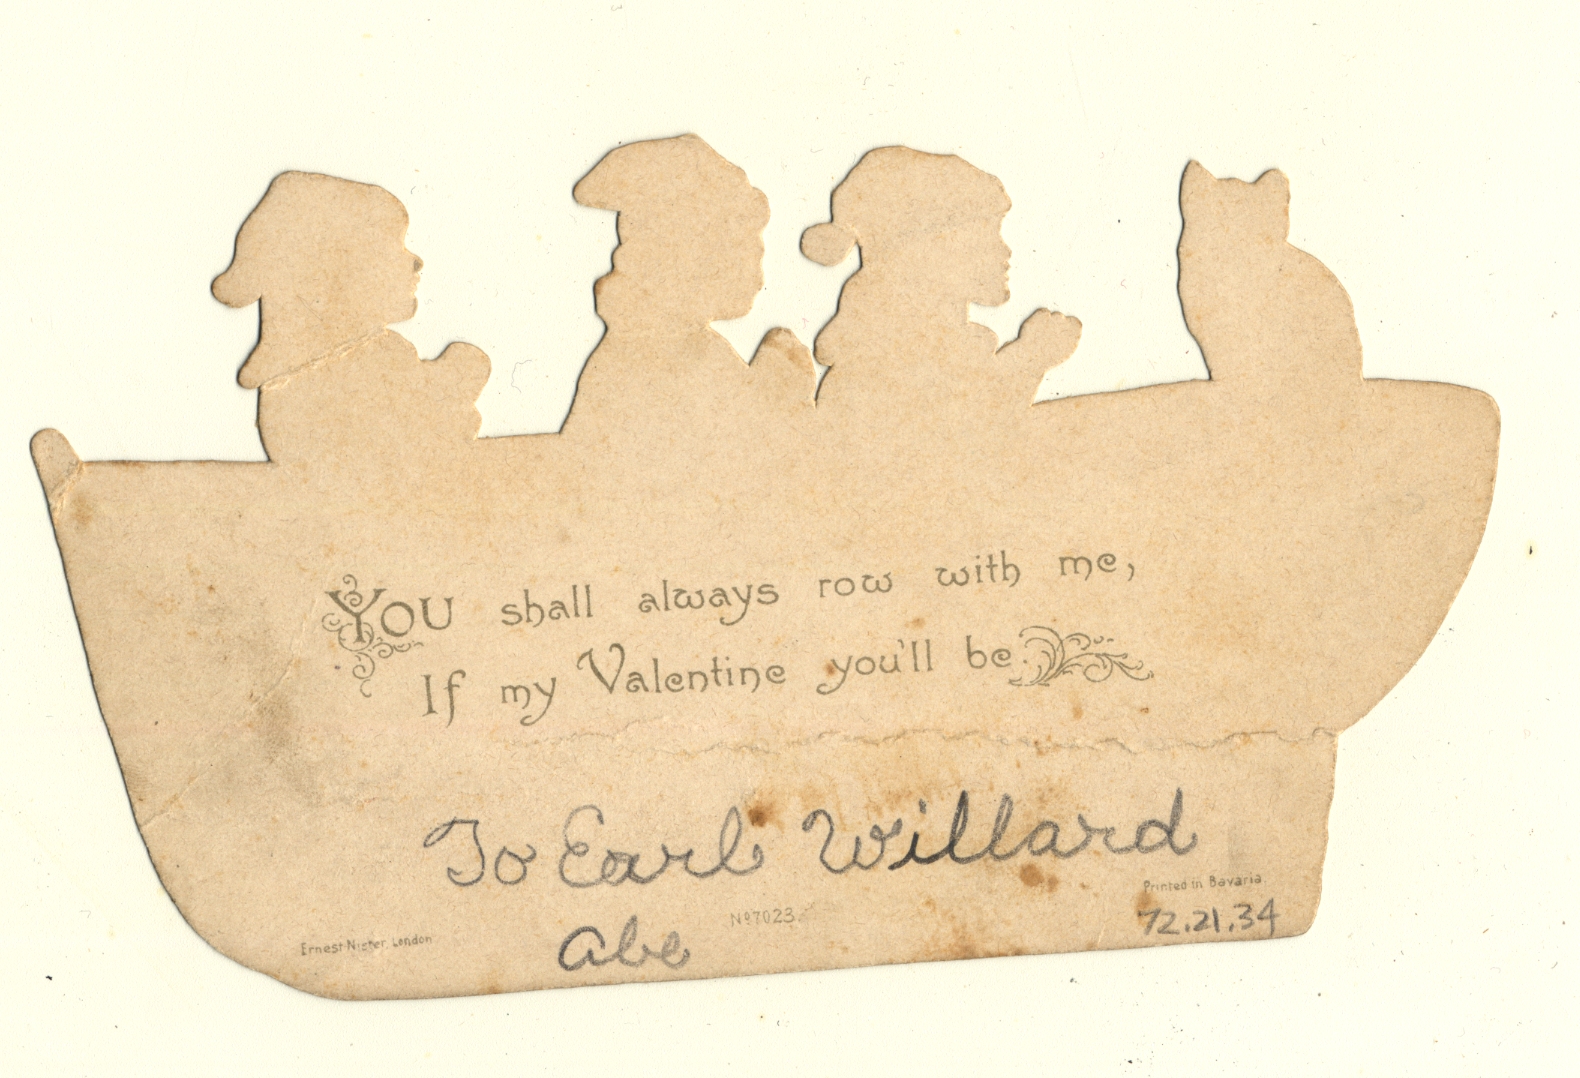 You shall always row with me,
If my Valentine you'll be.
To Earl Willard
Printed in Bavaria.
Nº7023.
72.21.34
Abe
Ernest Nister, London